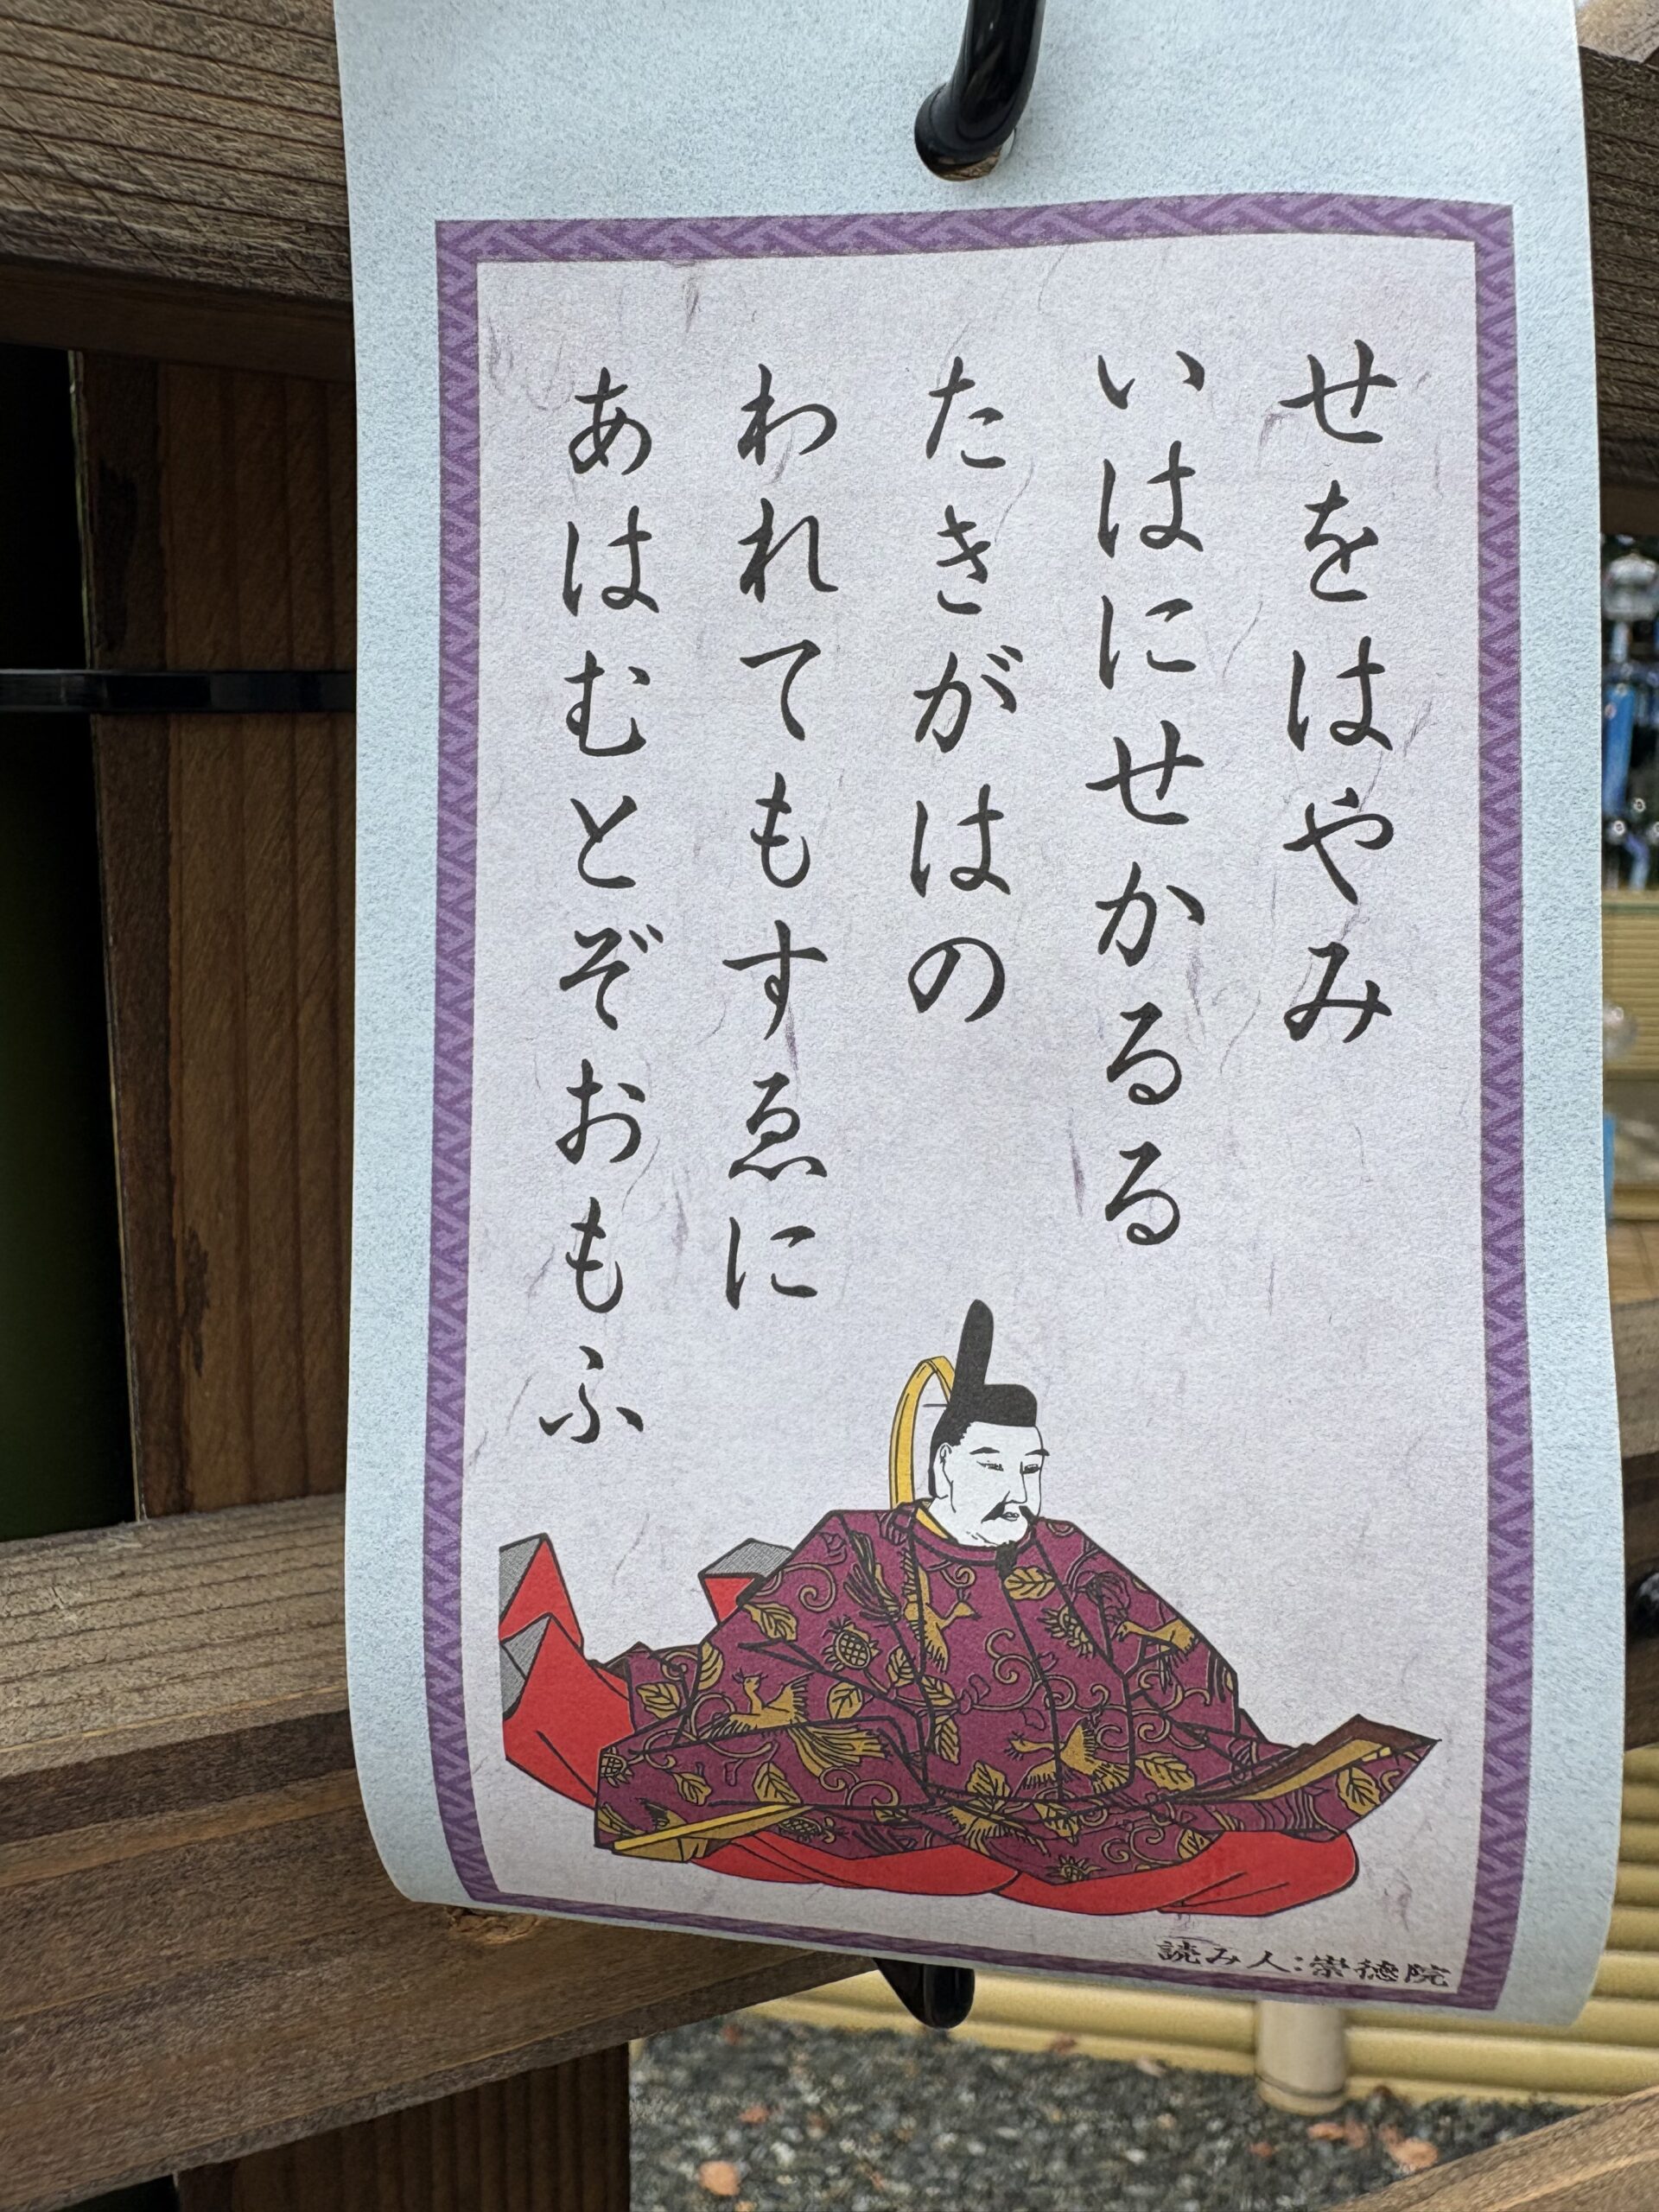 せをはやみ
いはにせかるる
たきがはの
われてもすゑに
あはむとぞおもふ
読み人：崇徳院